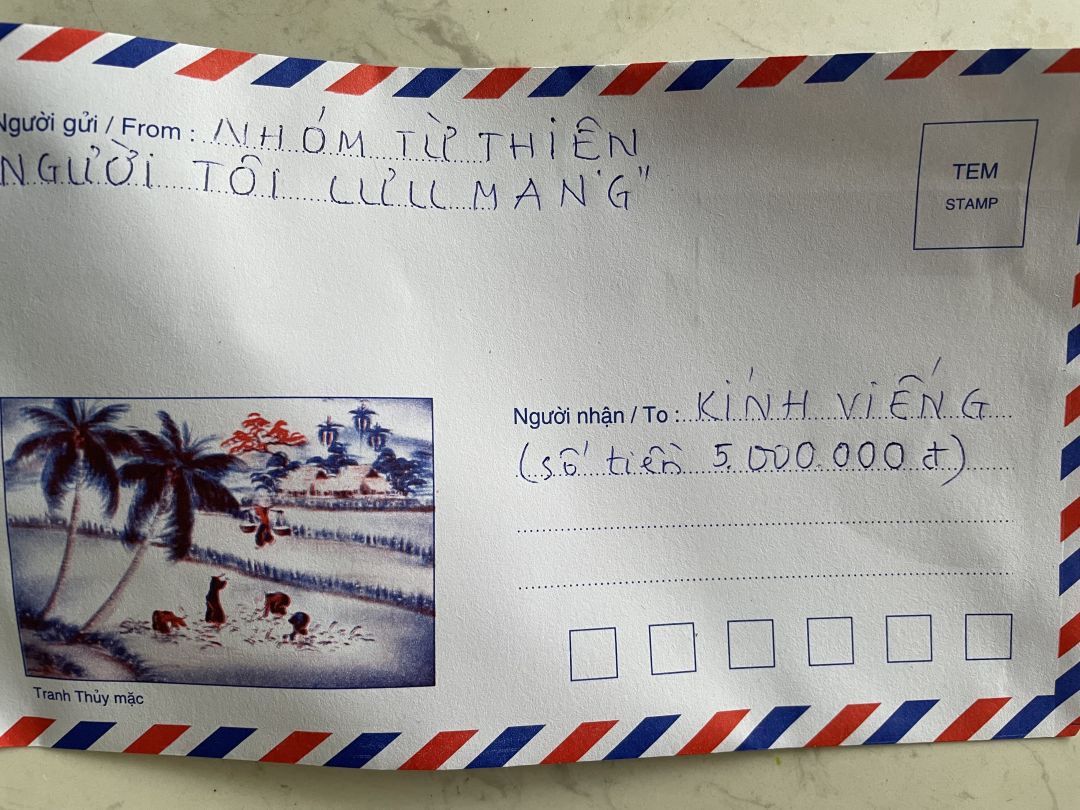 Người gửi / From : NHÓM TỪ THIỆN
NGƯỜI TÔI CƯU MANG"
TEM
STAMP
Người nhận / To : KÍNH VIẾNG
(số tiền 5.000.000 đ)
Tranh Thủy mặc